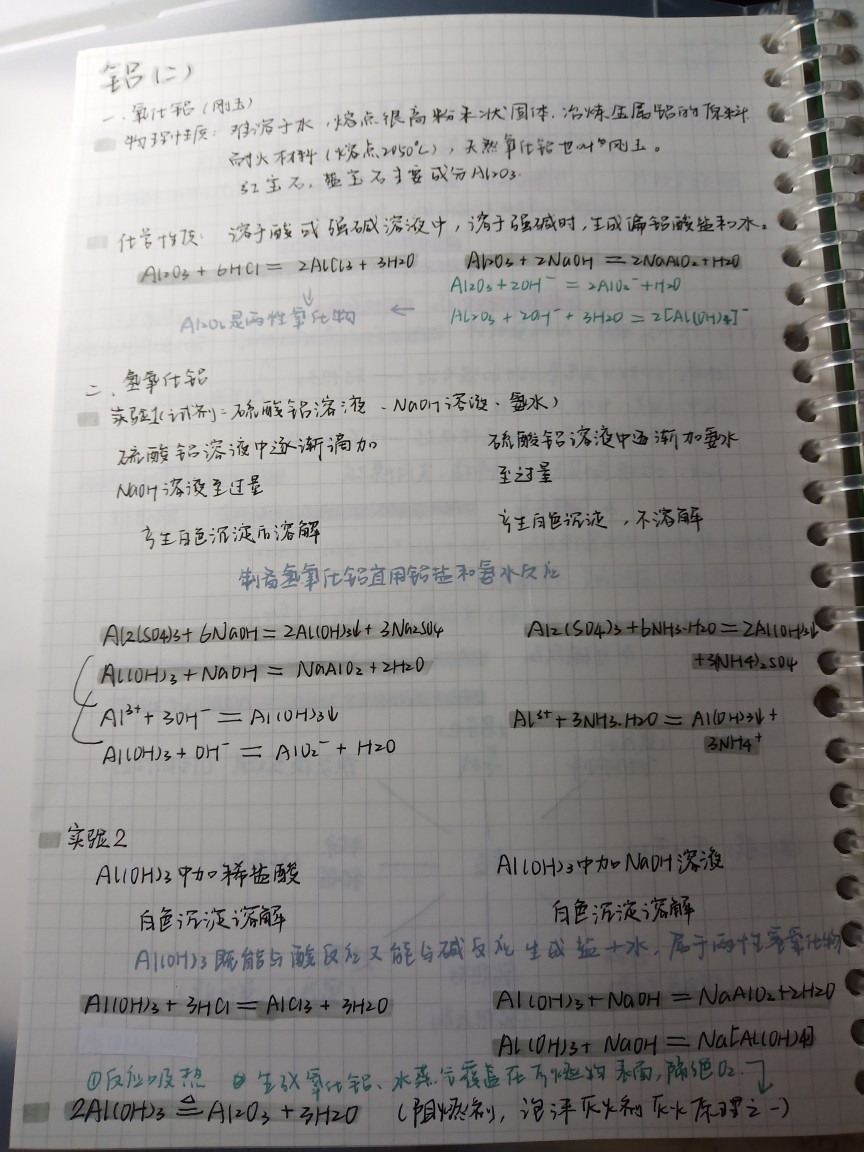 铝(二)
一、氧化铝(刚玉)
物理性质: 难溶于水,熔点很高粉末状固体.冶炼金属铝的原料
耐火材料(熔点2050℃),天然氧化铝也叫刚玉。
红宝石,蓝宝石主要成分Al2O3.
化学性质: 溶于酸或强碱溶液中,溶于强碱时,生成偏铝酸盐和水。
Al2O3 + 6HCl = 2AlCl3 + 3H2O Al2O3 + 2NaOH = 2NaAlO2 + H2O
Al2O3 + 2OH⁻ = 2AlO2⁻ + H2O
Al2O3是两性氧化物 ← Al2O3 + 2OH⁻ + 3H2O = 2[Al(OH)4]⁻
二、氢氧化铝
实验1(试剂: 硫酸铝溶液、NaOH溶液、氨水)
硫酸铝溶液中逐渐滴加 硫酸铝溶液中逐渐加氨水
NaOH溶液至过量 至过量
产生白色沉淀后溶解 产生白色沉淀,不溶解
制备氢氧化铝宜用铝盐和氨水反应
Al2(SO4)3 + 6NaOH = 2Al(OH)3↓ + 3Na2SO4 Al2(SO4)3 + 6NH3·H2O = 2Al(OH)3↓
Al(OH)3 + NaOH = NaAlO2 + 2H2O +3(NH4)2SO4
Al³⁺ + 3OH⁻ = Al(OH)3↓ Al³⁺ + 3NH3·H2O = Al(OH)3↓ +
Al(OH)3 + OH⁻ = AlO2⁻ + H2O 3NH4⁺
实验2
Al(OH)3中加稀盐酸 Al(OH)3中加NaOH溶液
白色沉淀溶解 白色沉淀溶解
Al(OH)3既能与酸反应又能与碱反应生成盐+水,属于两性氢氧化物
Al(OH)3 + 3HCl = AlCl3 + 3H2O Al(OH)3 + NaOH = NaAlO2 + 2H2O
Al(OH)3 + NaOH = Na[Al(OH)4]
①反应吸热 ②生成氧化铝、水蒸气覆盖在可燃物表面,隔绝O2.
2Al(OH)3 ≜ Al2O3 + 3H2O (阻燃剂,泡沫灭火剂灭火原理之一)